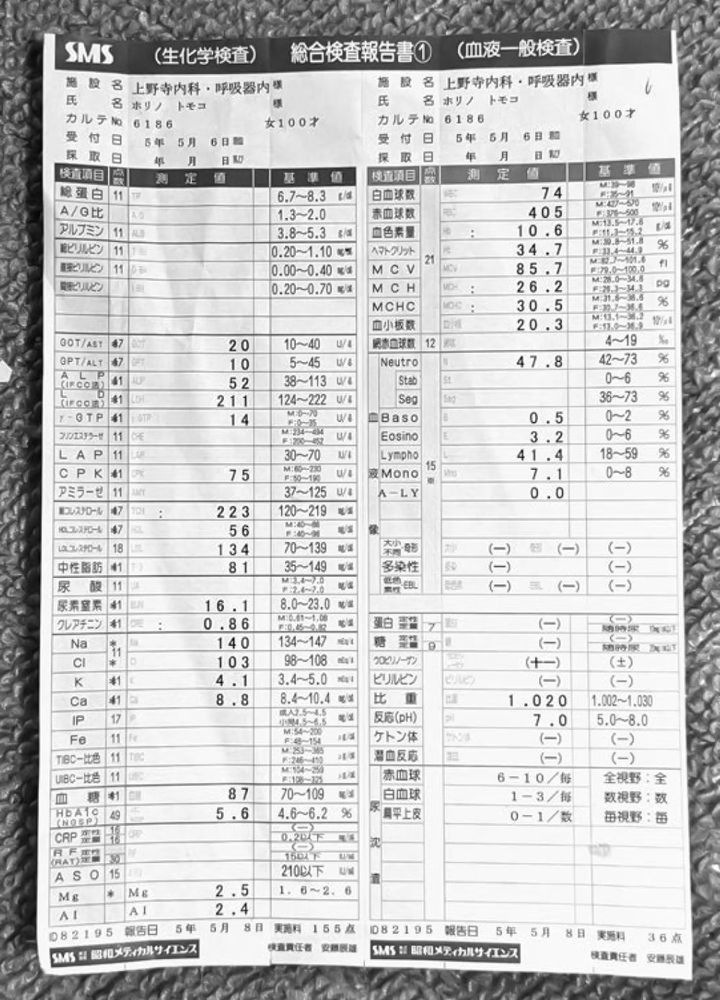 SMS （生化学検査） 総合検査報告書① （血液一般検査）
施設名 上野寺内科・呼吸器内 様
氏名 ホリノ トモコ 様
カルテNo 6186 女100才
受付日 5年 5月 6日
採取日 年 月 日
検査項目 点数 測定値 基準値
総蛋白 11 6.7～8.3 g/dl
A/G比 1.3～2.0
アルブミン 11 ALB 3.8～5.3 g/dl
総ビリルビン 11 0.20～1.10
直接ビリルビン 11 0.00～0.40
間接ビリルビン 0.20～0.70
GOT/AST *17 GOT 20 10～40 U/ℓ
GPT/ALT *17 GPT 10 5～45 U/ℓ
ALP (IFCC法) *11 ALP 52 38～113 U/ℓ
LD (IFCC法) *11 LDH 211 124～222 U/ℓ
γ-GTP *11 γ-GTP 14 M:0～70 F:0～35 U/ℓ
コリンエステラーゼ 11 CHE U/ℓ
LAP 11 LAP 30～70 U/ℓ
CPK *11 CPK 75 M:60～230 F:50～190 U/ℓ
アミラーゼ 11 AMY 37～125 U/ℓ
総コレステロール *17 : 223 120～219
HDLコレステロール *17 56
LDLコレステロール 18 LDL 134 70～139
中性脂肪 *11 81 35～149
尿酸 11 UA M:3.4～7.0 F:2.4～7.0
尿素窒素 *11 BUN 16.1 8.0～23.0
クレアチニン *11 CRE : 0.86
Na * 11 Na 140 134～147
Cl * Cl 103 98～108
K *11 K 4.1 3.4～5.0
Ca *11 Ca 8.8 8.4～10.4
IP 17 IP 成人2.5～4.5 小児4.5～6.5
Fe 11 Fe M:54～200 F:48～154
TIBC-比色 11 TIBC
UIBC-比色 11 UIBC
血糖 *11 87 70～109
HbA1c (NGSP) 49 5.6 4.6～6.2 %
CRP 定性 定量 16 16 CRP (－) 0.2以下
RF 定性 (RAT)定量 30 (－) 15以下
ASO 15 210以下
Mg * Mg 2.5 1.6～2.6
Al Al 2.4
ID82195 報告日 5年 5月 8日 実施料 155点
検査責任者 安藤辰雄
SMS 昭和メディカルサイエンス
施設名 上野寺内科・呼吸器内 様
氏名 ホリノ トモコ
カルテNo 6186 女100才
受付日 5年 5月 6日
採取日 年 月 日
検査項目 点数 測定値 基準値
白血球数 WBC 74 M:39～98 F:35～91
赤血球数 RBC 405 M:427～570 F:376～500
血色素量 : 10.6 M:13.5～17.6 F:11.3～15.2 g/dl
ヘマトクリット 34.7 M:39.8～51.8 F:33.4～44.9 %
21
MCV MCV 85.7 M:82.7～101.6 F:79.0～100.0 fl
MCH MCH : 26.2 M:28.0～34.6 F:26.3～34.3 pg
MCHC MCHC : 30.5 M:31.6～36.6 F:30.7～36.6 %
血小板数 20.3 M:13.1～36.2 F:13.0～36.9
網赤血球数 12 4～19 ‰
Neutro N 47.8 42～73 %
Stab St 0～6 %
Seg Seg 36～73 %
Baso B 0.5 0～2 %
Eosino E 3.2 0～6 %
Lympho L 41.4 18～59 %
Mono Mno 7.1 0～8 %
A-LY 0.0
血液像 15
大小不同 奇形 大小 (－) 奇形 (－) (－)
多染性 (－) (－)
低色素性・EBL (－) EBL (－) (－)
蛋白 定性 定量 7 (－) (－) 随時尿
糖 定性 定量 9 (－) (－) 随時尿
ウロビリノーゲン (+－) (±)
ビリルビン ビリルビン (－) (－)
比重 比重 1.020 1.002～1.030
反応(pH) pH 7.0 5.0～8.0
ケトン体 ケトン体 (－) (－)
潜血反応 潜血 (－) (－)
尿沈渣
赤血球 6－10／毎 全視野：全
白血球 1－3／毎 数視野：数
扁平上皮 0－1／数 毎視野：毎
ID82195 報告日 5年 5月 8日 実施料 36点
検査責任者 安藤辰雄
SMS 昭和メディカルサイエンス